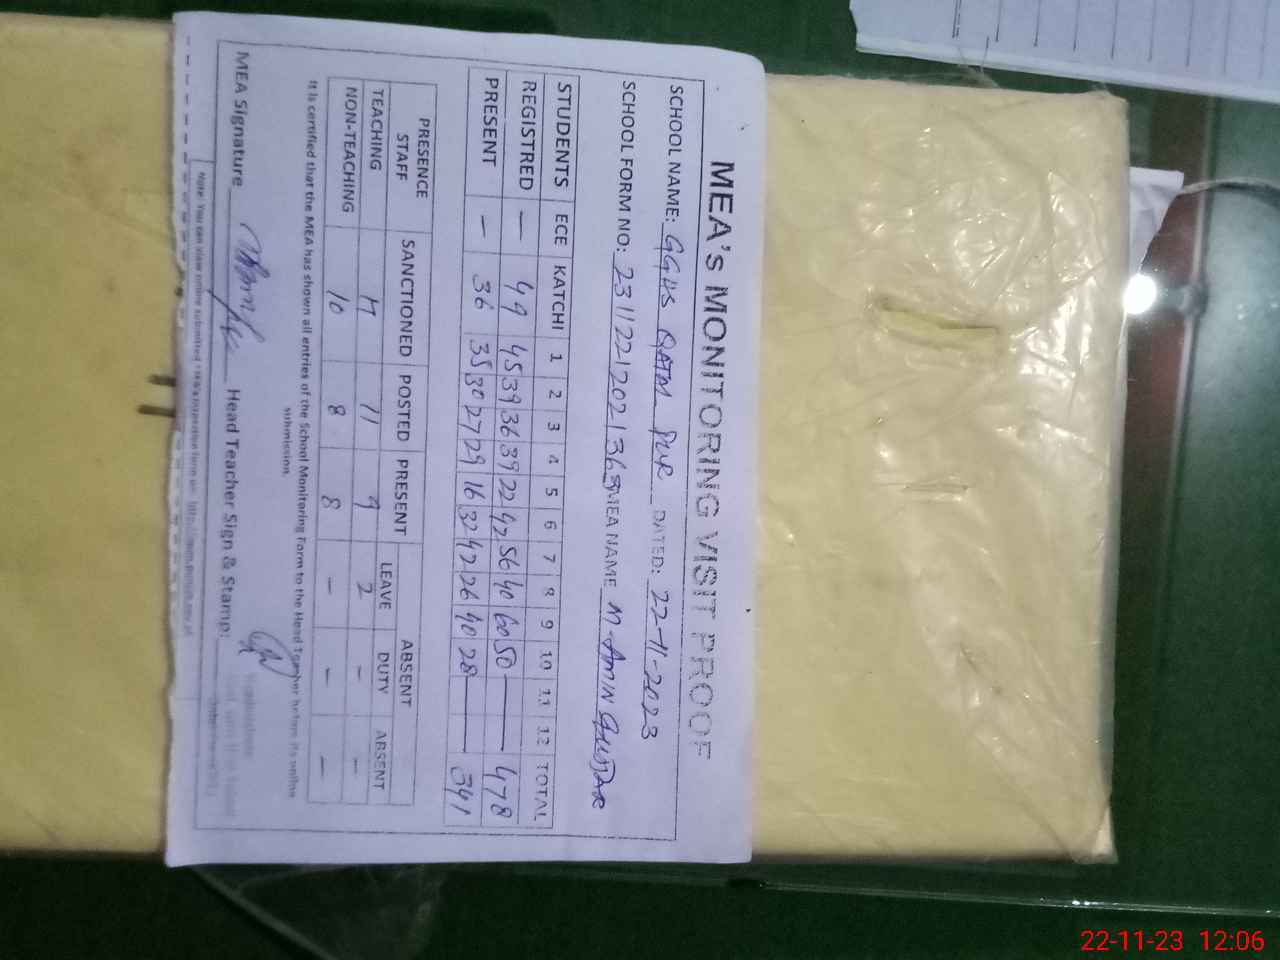 MEA's MONITORING VISIT PROOF
SCHOOL NAME: GGHS QATAL PUR DATED: 22-11-2023
SCHOOL FORM NO: MEA NAME M-AMIN GUJJAR
STUDENTS ECE KATCHI 1 2 3 4 5 6 7 8 9 10 11 12 TOTAL
REGISTRED — 49 45 39 36 39 22 42 56 40 60 50 — 478
PRESENT — 36 35 30 27 29 16 32 42 26 40 28 — 341
PRESENCE STAFF SANCTIONED POSTED PRESENT ABSENT
LEAVE DUTY ABSENT
TEACHING 17 11 9 2 — —
NON-TEACHING 10 8 8 — — —
It is certified that the MEA has shown all entries of the School Monitoring Form to the Head Teacher before its online
submission.
MEA Signature Head Teacher Sign & Stamp:
Note: You can view online submitted
22-11-23 12:06